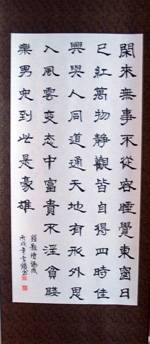 閑來無事不從容睡覺東窗日
已紅萬物靜觀皆自得四時佳
興與人同道通天地有形外思
入風雲變態中富貴不淫貧賤
樂男兒到此是豪雄